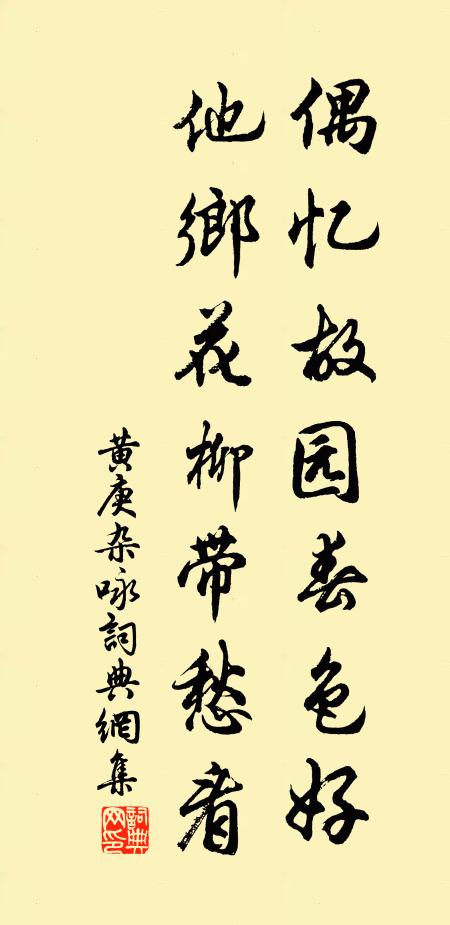 偶忆故园春色好
他鄉花柳带愁看
黄庚杂咏詞典網集
詞典网印